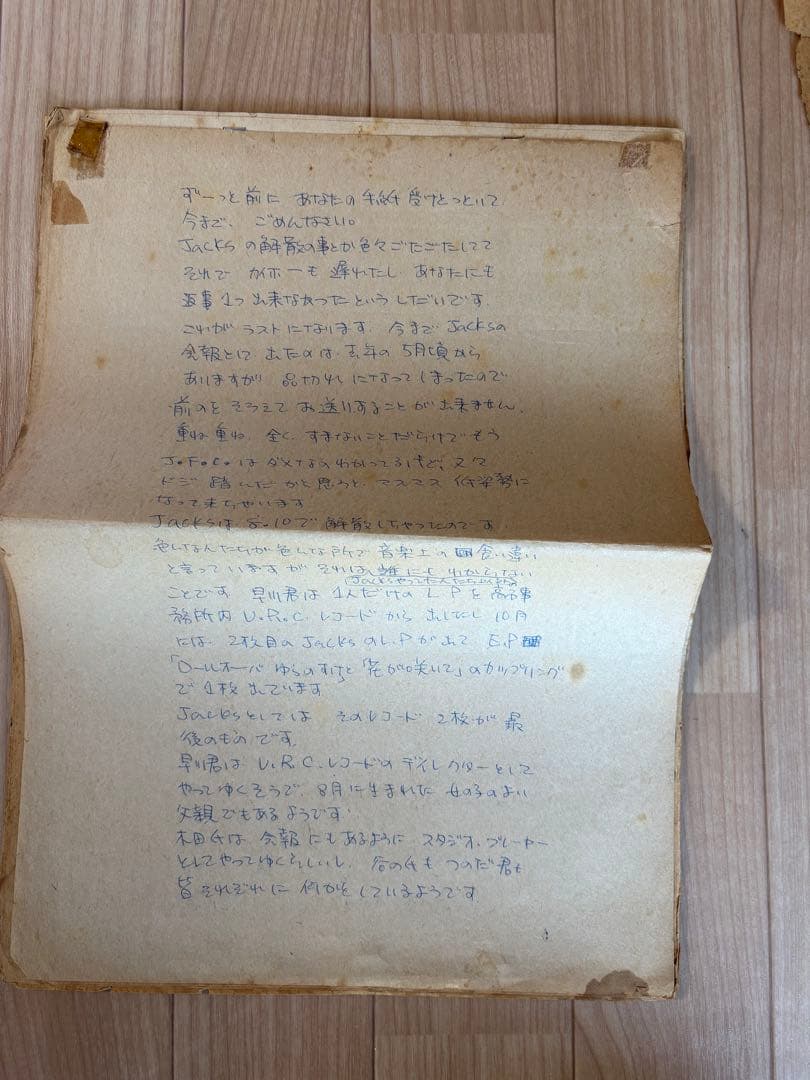 ずーっと前に あなたの手紙 受けとっといて
今まで、ごめんなさい。
Jacksの解散の事とか色々ごたごたしてて
それで カイホーも 遅れたし あなたにも
返事1つ 出来なかったというしだいです。
これが ラストになります。今まで Jacksの
会報として 出たのは、去年の 5月頃から
ありますが 品切れになってしまったので
前のを そろえて お送りすることが出来ません。
重ね重ね、全く、すまないことだらけで もう
J.F.C.は ダメなのわかってるけど、又々
ドジ 踏んだかと思うと、マスマス 低姿勢に
なって来ちゃいます
Jacksは 8.10で 解散しちゃったのです。
色んな人たちが 色んな所で 音楽上の 食い違い
と言っていますが それは、誰にも わからない
(Jacksやってた人たち以外の)
ことです 早川君は 1人だけの L.Pを 高石事
務所内 U.R.C.レコードから 出したし 10月
には、2枚目の JacksのL.Pが出て E.P
「ロールオーバーゆらのすけ」と「花が咲いて」のカップリング
で 1枚 出ています
Jacksとしては そのレコード 2枚が 最
後のものです。
早川君は U.R.C.レコードの ディレクターとして
やってゆくそうで、8月に生まれた 女の子のよい
父親でもあるようです
木田氏は 会報にもあるように スタジオ・プレーヤー
としてやってゆくらしいし、谷の氏も つのだ君も
皆 それぞれに 何かをしているようです